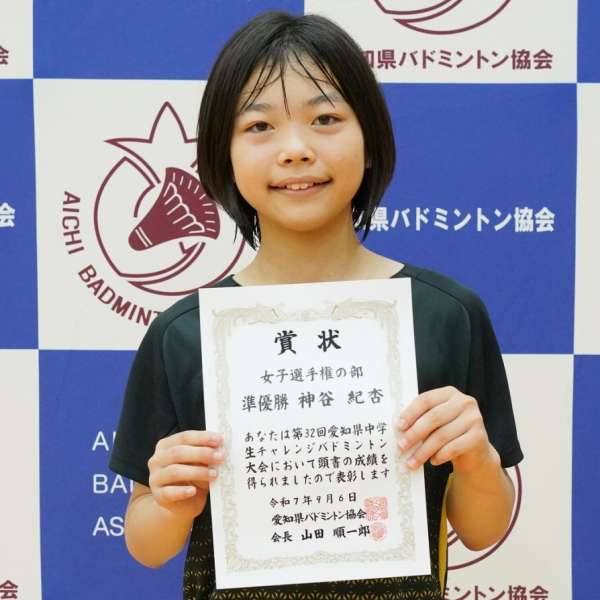 知県バドミントン協会
AICHI BADMINT
県バドミントン協会
賞状
女子選手権の部
準優勝 神谷 紀杏
あなたは第32回愛知県中学
生チャレンジバドミントン
大会において頭書の成績を
得られましたので表彰します
令和7年9月6日
愛知県バドミントン協会
会長 山田 順一郎
AI
BAD
ASS